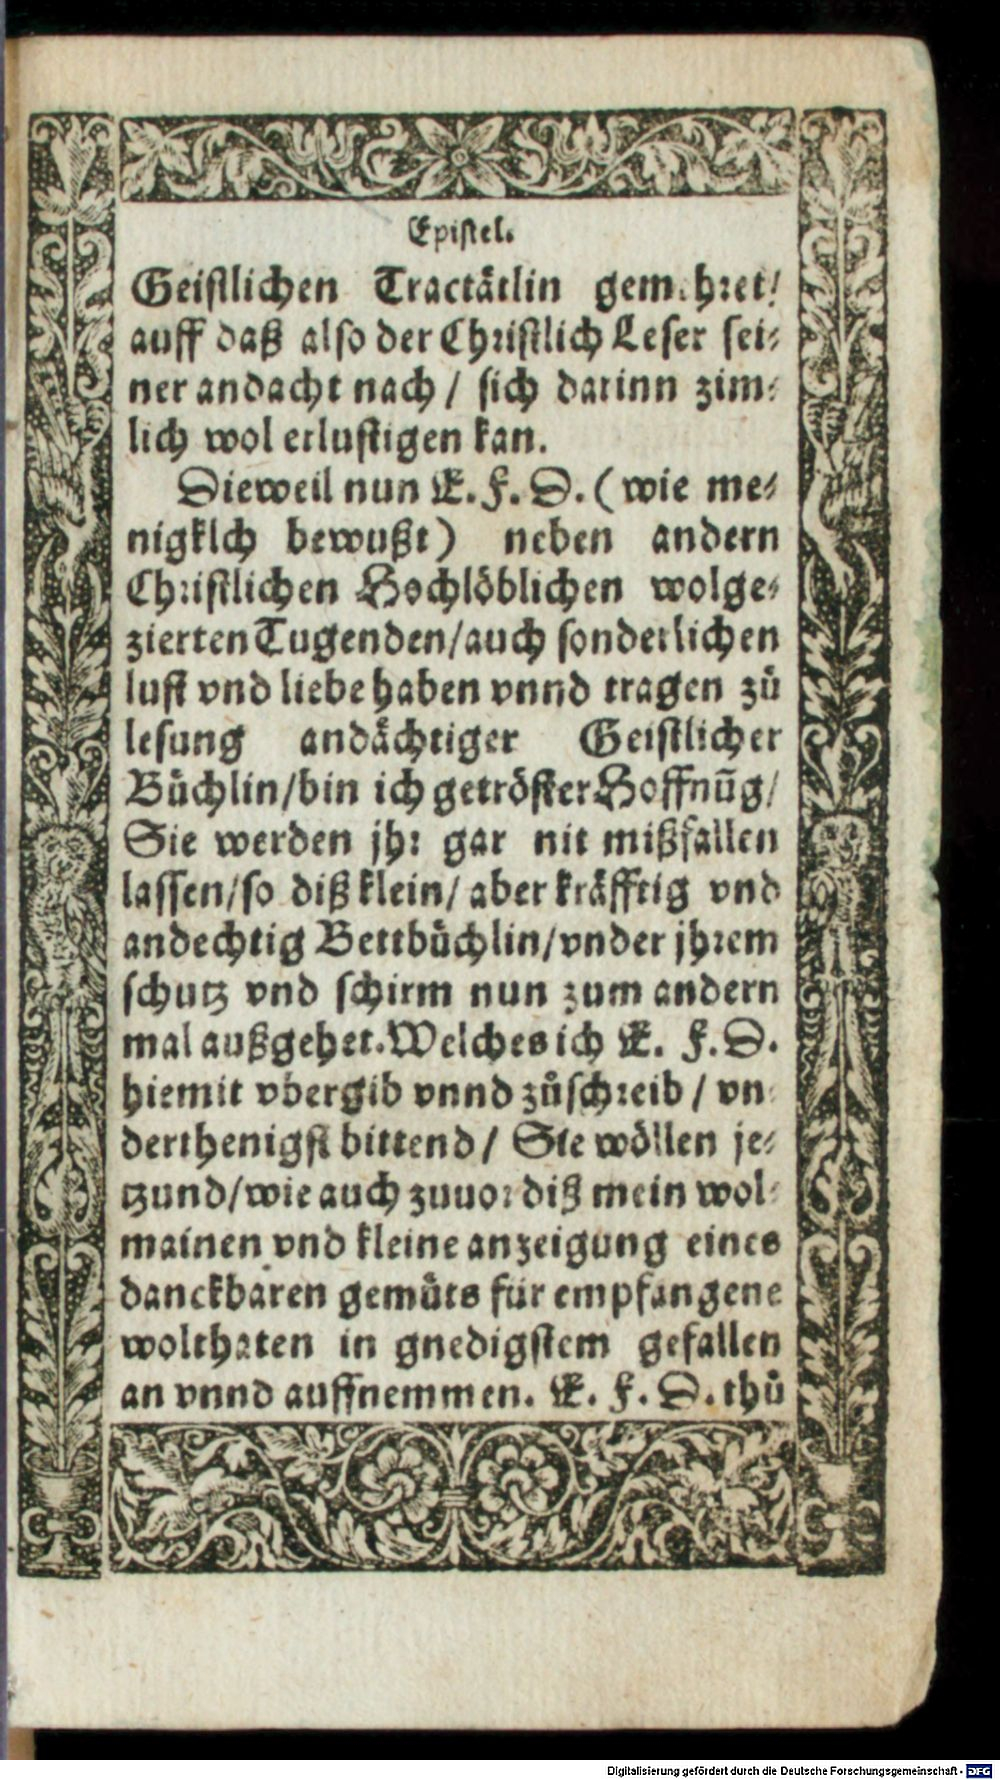 Epistel.
Geistlichen Tractätlin gemehret/
auff daß also der Christlich Leser sei-
ner andacht nach / sich darinn zim-
lich wol erlustigen kan.
Dieweil nun E. F. D. (wie me-
nigklch bewußt) neben andern
Christlichen Hochlöblichen wolge-
zierten Tugenden/auch sonderlichen
lust vnd liebe haben vnnd tragen zů
lesung andächtiger Geistlicher
Büchlin/bin ich getröster Hoffnũg/
Sie werden jhr gar nit mißfallen
lassen/so diß klein/ aber kräfftig vnd
andechtig Bettbüchlin/vnder jhrem
schutz vnd schirm nun zum andern
mal außgehet. Welches ich E. F. D.
hiemit vbergib vnnd zůschreib / vn-
derthenigst bittend/ Sie wöllen je-
tzund/wie auch zuuor diß mein wol-
mainen vnd kleine anzeigung eines
danckbaren gemüts für empfangene
wolthaten in gnedigstem gefallen
an vnnd auffnemmen. E. F. D. thů
Digitalisierung gefördert durch die Deutsche Forschungsgemeinschaft - DFG